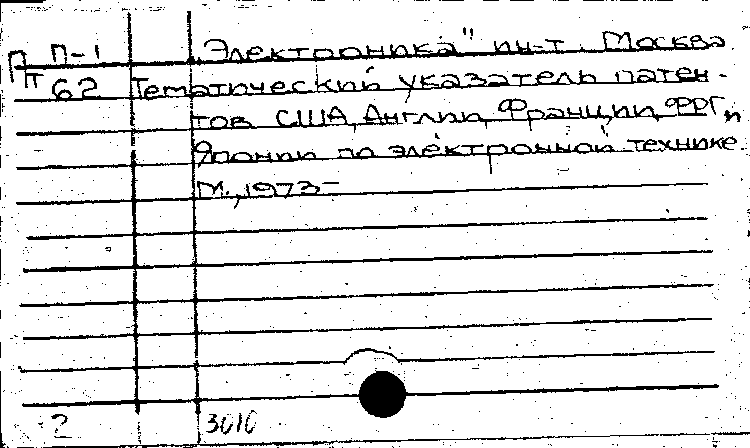 П П-1 „Электроника" ин-т. Москва
Т 62 Тематический указатель патен-
тов США, Англии, Франции, ФРГ, и
Японии по электронной технике.
М., 1973-
2 3010